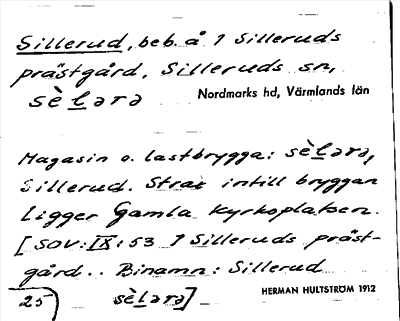 Sillerud, beb. å 1 Silleruds
prästgård, Silleruds sn,
sèLərə Nordmarks hd, Värmlands län
Magasin o. lastbrygga: sèLərə,
Sillerud. Strax intill bryggan
ligger Gamla kyrkoplatsen.
[SOV: IX: 53 1 Silleruds präst-
gård.. Binamn: Sillerud
25 sèLərə] HERMAN HULTSTRÖM 1912